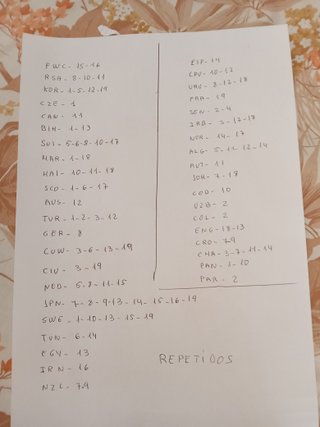 FWC - 15-16
RSA - 8-10-11
KOR - 1-5-12-19
CZE - 1
CAN - 11
BIH - 1-13
SUI - 5-6-8-10-17
MAR - 1-18
HAI - 10-11-18
SCO - 1-6-17
AUS - 12
TUR - 1-2-3-12
GER - 8
CUW - 3-6-13-19
CIV - 3-19
NED - 5-8-11-15
JPN - 7-8-9-13-14-15-16-19
SWE - 1-10-13-15-19
TUN - 6-14
EGY - 13
IRN - 16
NZL - 7-9
ESP - 14
CPV - 10-17
URU - 8-12-18
FRA - 19
SEN - 2-4
IRQ - 3-12-18
NOR - 14-17
ALG - 5-11-12-14
AUT - 11
JOR - 7-18
COD - 10
UZB - 2
COL - 2
ENG - 18-13
CRO - 7-9
GHA - 3-7-11-14
PAN - 1-10
PAR - 2
REPETIDOS